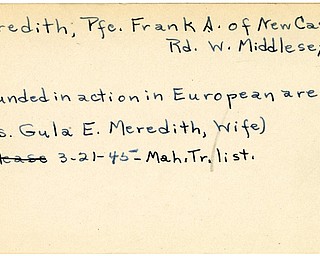 redith, Pfc. Frank A. of New Cas
Rd. W. Middlese,
unded in action in European are
s. Gula E. Meredith, Wife)
lease 3-21-45- Mah. Tr. list.